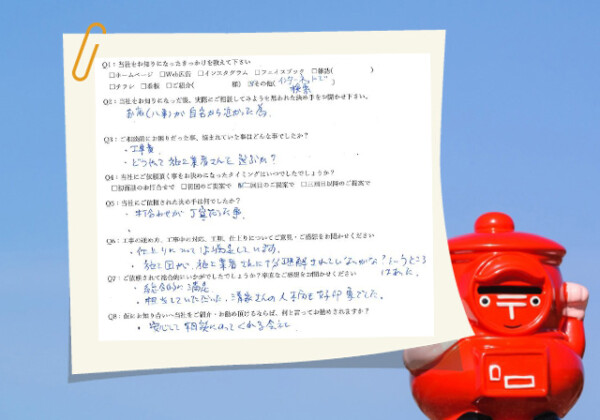 Q1：当社をお知りになったきっかけを教えて下さい
□ホームページ □Web広告 □インスタグラム □フェイスブック □雑誌( )
□チラシ □看板 □ご紹介( 様) ☑その他(インターネットで検索)
Q2：当社をお知りになった後、実際にご相談してみようと思われた決め手をお聞かせ下さい。
お店(八事)が自宅から近かった為。
Q3：ご相談前にお困りだった事、悩まれていた事はどんな事でしたか？
・工事費
・どうやって施工業者さんを選ぶか？
Q4：当社にご依頼頂く事をお決めになったタイミングはいつでしたでしょうか？
□初回のお打合せで □初回のご提案で ☑二回目のご提案で □三回目以降のご提案で
Q5：当社にご依頼された決め手は何でしたか？
・打合わせが丁寧だった事
・
Q6：工事の進め方、工事中の対応、工期、仕上りについてご意見・ご感想をお聞かせください
・仕上りについては満足しています。
・施工図が、施工業者さんに理解されていないかな？というところはあった。
Q7：ご依頼されて総合的にいかがでしたでしょうか？率直なご感想をお聞かせください
・総合的に満足
・担当していただいた、清水さんの人柄も好印象でした。
Q8：仮にお知り合いへ当社をご紹介・お勧め頂けるならば、何と言ってお勧めされますか？
・安心して相談にのってくれる会社
〒